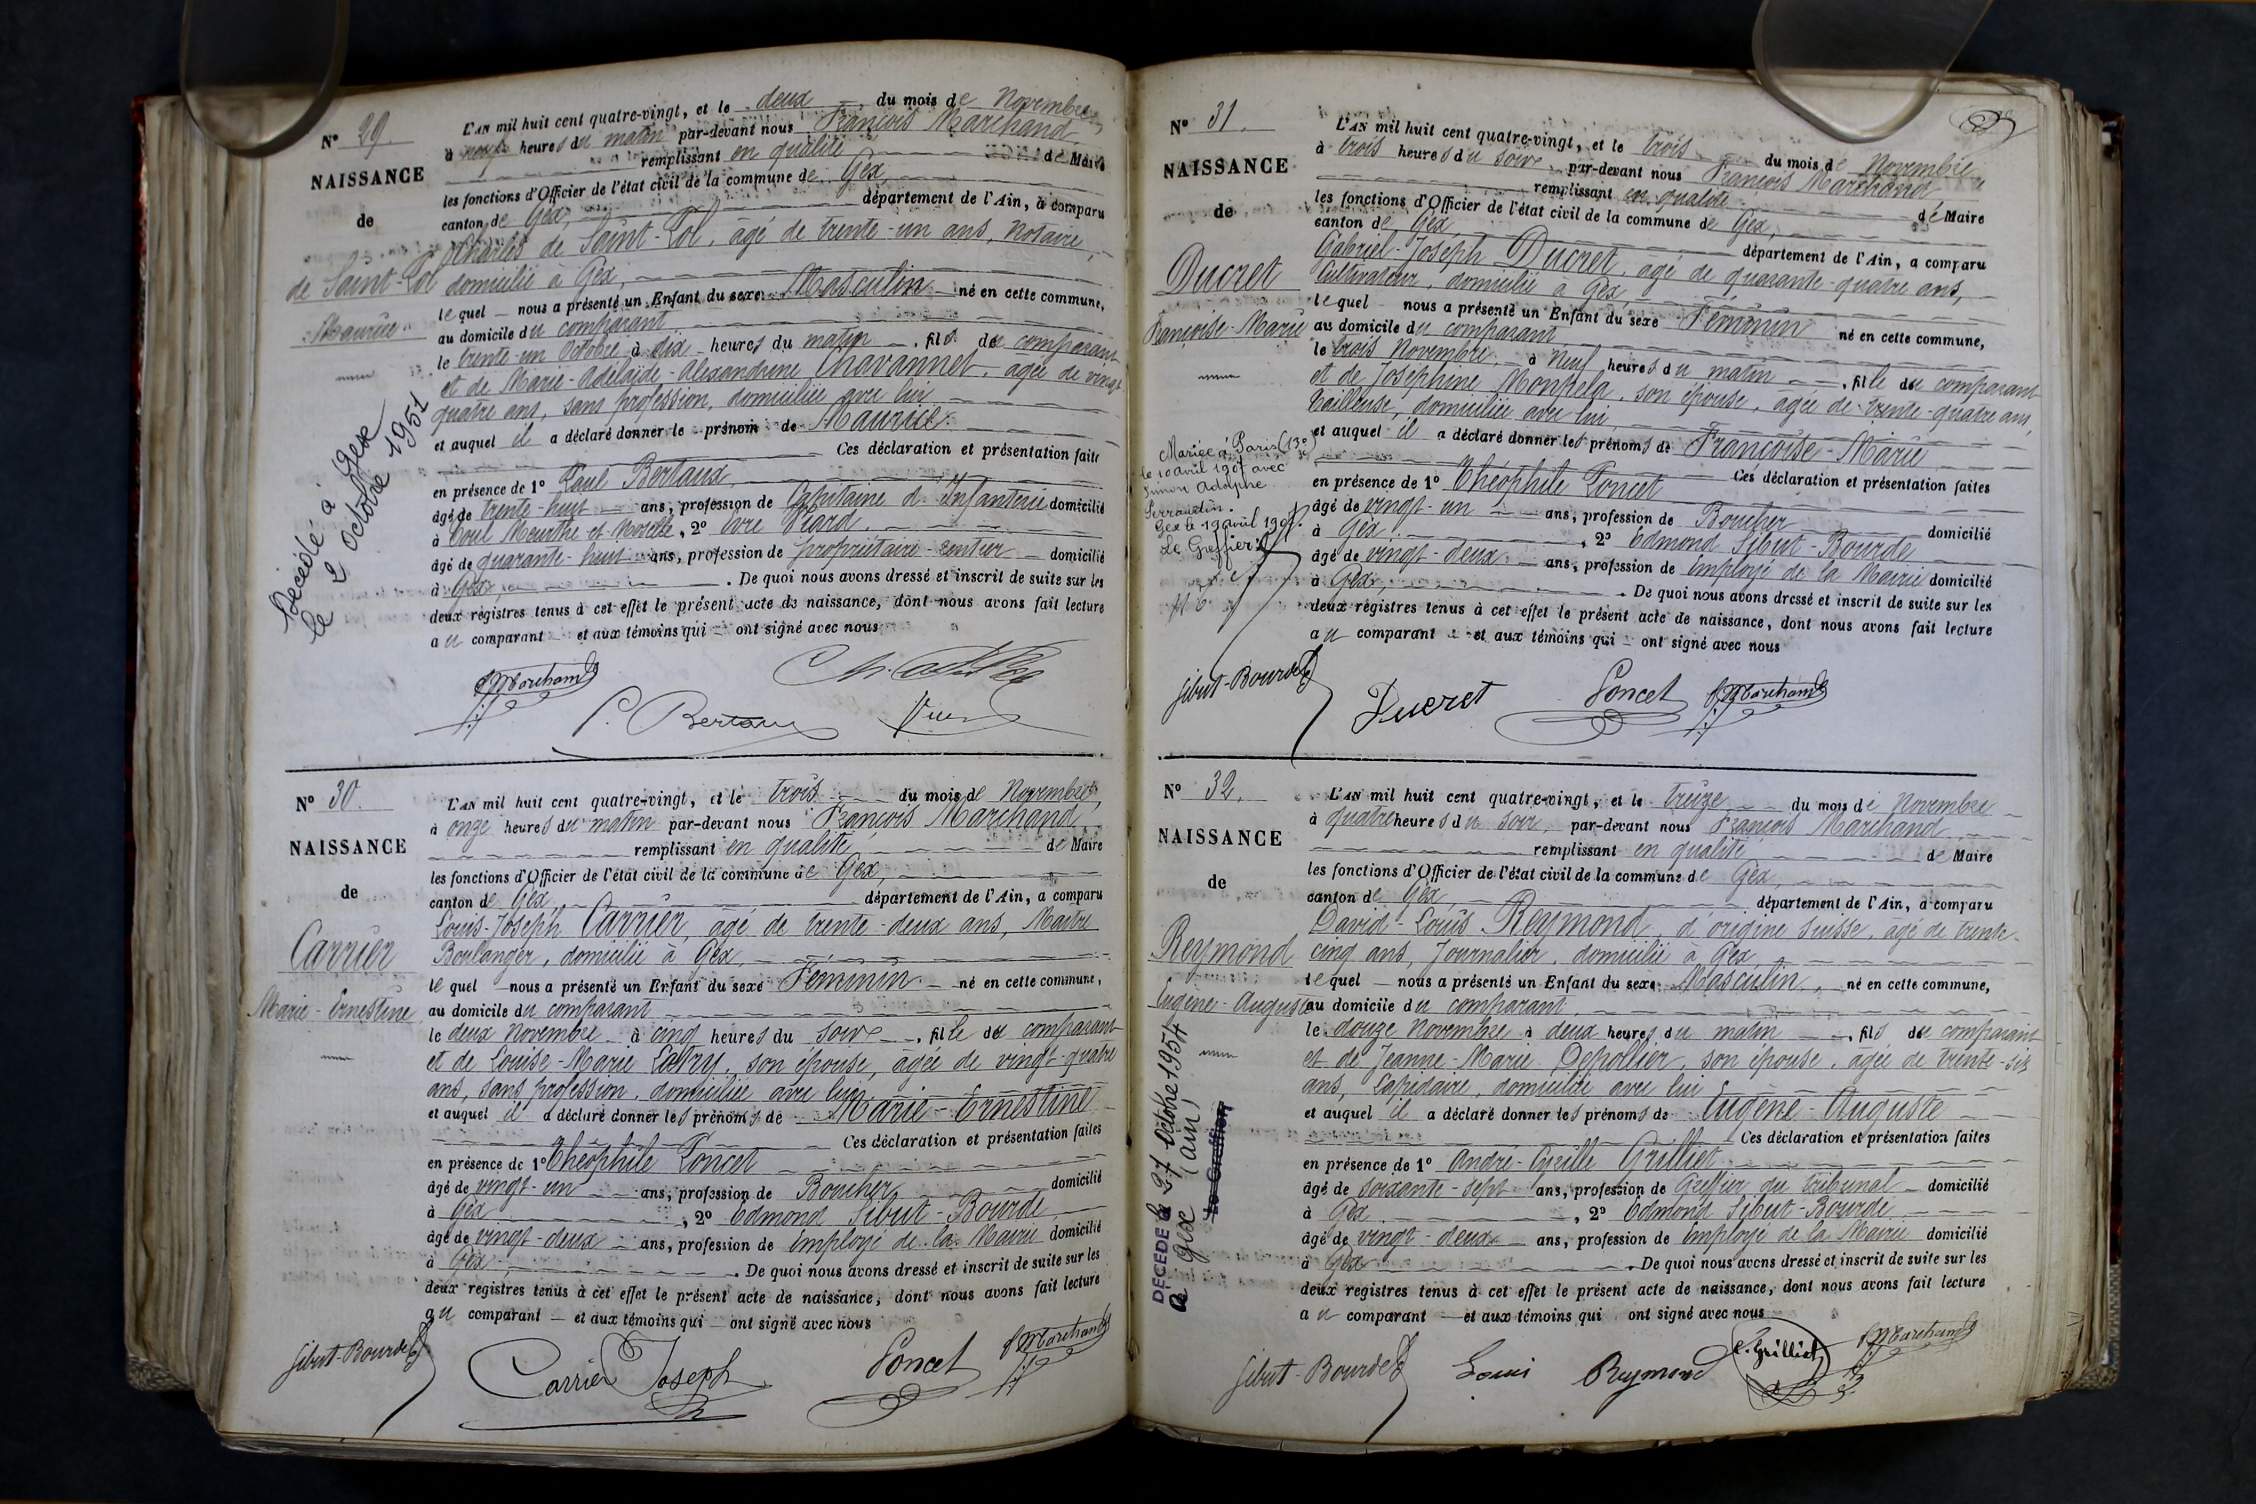 N° 29.
NAISSANCE
de
de Saint-Pol
Maurice
Décédé à Gex
le 2 octobre 1951
L'AN mil huit cent quatre-vingt, et le deux du mois de Novembre
à heures du matin par-devant nous François Marchand
remplissant en qualité de Maire
les fonctions d'Officier de l'état civil de la commune de Gex,
canton de Gex, département de l'Ain, a comparu
Charles de Saint-Pol, âgé de trente-un ans, Notaire,
domicilié à Gex,
lequel nous a présenté un Enfant du sexe Masculin né en cette commune,
au domicile du comparant
le trente-un Octobre à dix heures du matin, fils du comparant
et de Marie-Adélaïde-Alexandrine Chavannet, âgée de vingt
quatre ans, sans profession, domiciliée avec lui
et auquel il a déclaré donner le prénom de Maurice.
Ces déclaration et présentation faites
en présence de 1° Paul Bertaux
âgé de trente-huit ans, profession de Capitaine d'Infanterie domicilié
à Toul Meurthe et Moselle, 2° Viard
âgé de quarante-huit ans, profession de propriétaire-rentier domicilié
à Gex, . De quoi nous avons dressé et inscrit de suite sur les
deux registres tenus à cet effet le présent acte de naissance, dont nous avons fait lecture
au comparant et aux témoins qui ont signé avec nous
F Marchand
P. Bertaux
N° 30.
NAISSANCE
de
Carrier
Marie-Ernestine
L'AN mil huit cent quatre-vingt, et le trois du mois de Novembre,
à onze heures du matin par-devant nous François Marchand
remplissant en qualité de Maire
les fonctions d'Officier de l'état civil de la commune de Gex,
canton de Gex, département de l'Ain, a comparu
Louis-Joseph Carrier, âgé de trente-deux ans, Maître
Boulanger, domicilié à Gex,
lequel nous a présenté un Enfant du sexe Féminin né en cette commune,
au domicile du comparant
le deux Novembre à cinq heures du soir, fille du comparant
et de Louise-Marie, son épouse, âgée de vingt-quatre
ans, sans profession, domiciliée avec lui
et auquel il a déclaré donner les prénoms de Marie-Ernestine
Ces déclaration et présentation faites
en présence de 1° Théophile Poncet
âgé de vingt-un ans, profession de Boucher domicilié
à Gex, 2° Edmond Sibut-Bourde
âgé de vingt-deux ans, profession de Employé de la Mairie domicilié
à Gex, . De quoi nous avons dressé et inscrit de suite sur les
deux registres tenus à cet effet le présent acte de naissance, dont nous avons fait lecture
au comparant et aux témoins qui ont signé avec nous
Sibut-Bourde Carrier Joseph Poncet F Marchand
N° 31.
NAISSANCE
de
Ducret
Françoise-Marie
Mariée à Paris (13e)
le 10 avril 1907 avec
Simon Adolphe
Perraudin.
Gex le 19 avril 1907.
Le Greffier
L'AN mil huit cent quatre-vingt, et le trois du mois de Novembre
à trois heures du soir par-devant nous François Marchand
remplissant en qualité de Maire
les fonctions d'Officier de l'état civil de la commune de Gex,
canton de Gex, département de l'Ain, a comparu
Gabriel-Joseph Ducret, âgé de quarante-quatre ans,
Cultivateur, domicilié à Gex,
lequel nous a présenté un Enfant du sexe Féminin né en cette commune,
au domicile du comparant
le trois Novembre, à Neuf heures du matin, fille du comparant
et de Joséphine Monpela, son épouse, âgée de trente-quatre ans,
Tailleuse, domiciliée avec lui,
et auquel il a déclaré donner les prénoms de Françoise-Marie
Ces déclaration et présentation faites
en présence de 1° Théophile Poncet
âgé de vingt-un ans, profession de Boucher domicilié
à Gex, 2° Edmond Sibut-Bourde
âgé de vingt-deux ans, profession de Employé de la Mairie domicilié
à Gex, . De quoi nous avons dressé et inscrit de suite sur les
deux registres tenus à cet effet le présent acte de naissance, dont nous avons fait lecture
au comparant et aux témoins qui ont signé avec nous
Sibut-Bourde Ducret Poncet F Marchand
N° 32.
NAISSANCE
de
Reymond
Eugène-Auguste
DECEDE le 27 Octobre 1954
à Gex (Ain)
Le Greffier
L'AN mil huit cent quatre-vingt, et le treize du mois de Novembre
à quatre heures du soir, par-devant nous François Marchand
remplissant en qualité de Maire
les fonctions d'Officier de l'état civil de la commune de Gex,
canton de Gex, département de l'Ain, a comparu
David-Louis Reymond, d'origine Suisse, âgé de trente-
cinq ans, Journalier, domicilié à Gex
lequel nous a présenté un Enfant du sexe Masculin, né en cette commune,
au domicile du comparant
le douze Novembre à deux heures du matin, fils du comparant
et de Jeanne-Marie Depollier, son épouse, âgée de trente-six
ans, Lapidaire, domiciliée avec lui
et auquel il a déclaré donner les prénoms de Eugène-Auguste
Ces déclaration et présentation faites
en présence de 1° André-Cyrille Grilliet
âgé de soixante-sept ans, profession de Greffier du tribunal domicilié
à Gex, 2° Edmond Sibut-Bourde
âgé de vingt-deux ans, profession de Employé de la Mairie domicilié
à Gex . De quoi nous avons dressé et inscrit de suite sur les
deux registres tenus à cet effet le présent acte de naissance, dont nous avons fait lecture
au comparant et aux témoins qui ont signé avec nous
Sibut-Bourde Louis Reymond C. Grilliet F Marchand